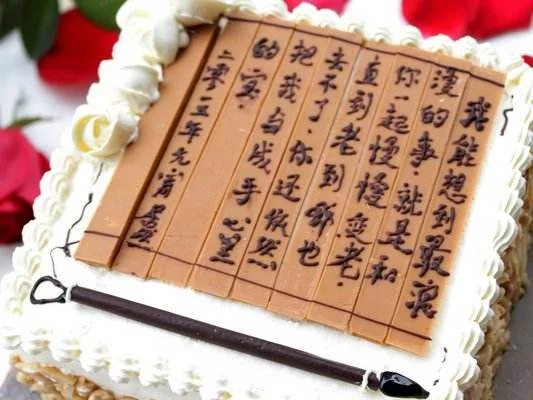 我能想到最浪
漫的事.就是和
你一起慢慢变老.
直到老到哪也
去不了.你还依然
把我当成手心里
的宝
二零一五年元宵